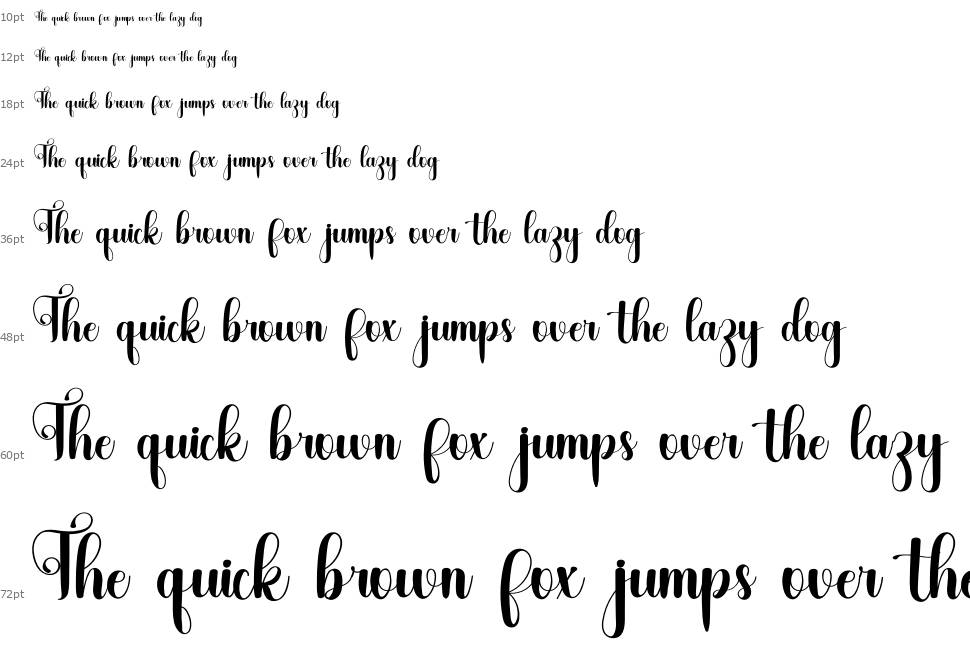 10pt The quick brown fox jumps over the lazy dog
12pt The quick brown fox jumps over the lazy dog
18pt The quick brown fox jumps over the lazy dog
24pt The quick brown fox jumps over the lazy dog
36pt The quick brown fox jumps over the lazy dog
48pt The quick brown fox jumps over the lazy dog
60pt The quick brown fox jumps over the lazy
72pt The quick brown fox jumps over the